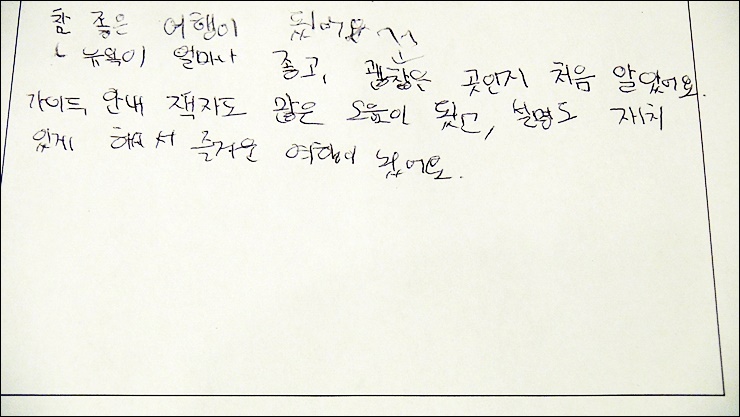 참 좋은 여행이 됬어요 전
뉴욕이 얼마나 좋고, 괜찮은 곳인지 처음 알았어요.
가이드 안내 책자도 많은 도움이 됬고, 설명도 재치
있게 해서 즐거운 여행이 됬어요.